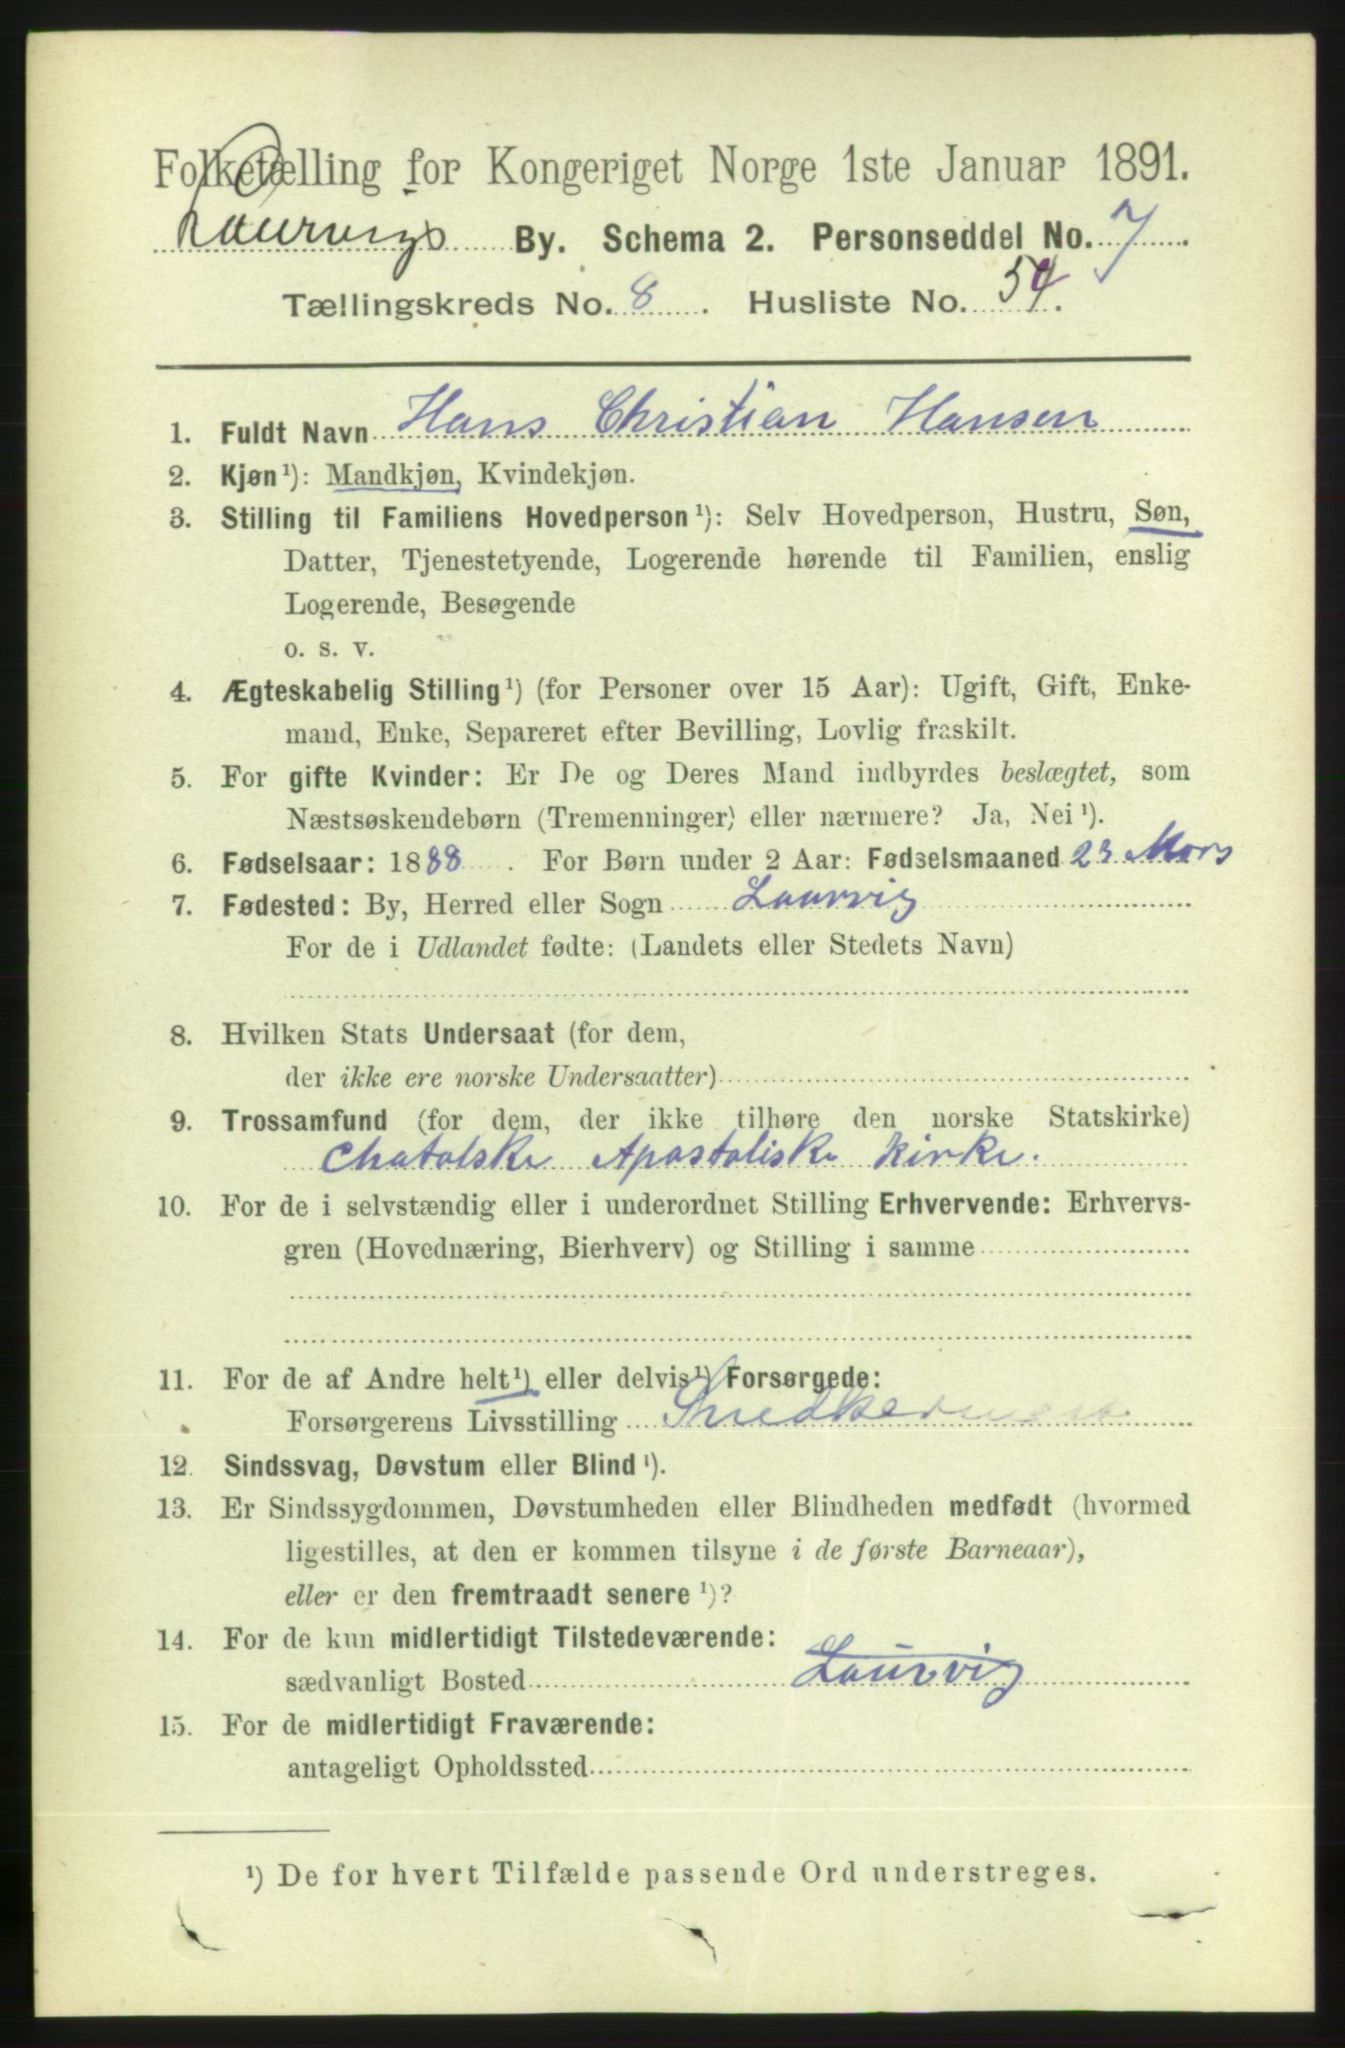 Folketælling for Kongeriget Norge 1ste Januar 1891.
Laurvigs By. Schema 2. Personseddel No. 7
Tællingskreds No. 8. Husliste No. 54.
1. Fuldt Navn Hans Christian Hansen
2. Kjøn¹): Mandkjøn, Kvindekjøn.
3. Stilling til Familiens Hovedperson¹): Selv Hovedperson, Hustru, Søn,
Datter, Tjenestetyende, Logerende hørende til Familien, enslig
Logerende, Besøgende
o. s. v.
4. Ægteskabelig Stilling¹) (for Personer over 15 Aar): Ugift, Gift, Enke-
mand, Enke, Separeret efter Bevilling, Lovlig fraskilt.
5. For gifte Kvinder: Er De og Deres Mand indbyrdes beslægtet, som
Næstsøskendebørn (Tremenninger) eller nærmere? Ja, Nei¹).
6. Fødselsaar: 1888. For Børn under 2 Aar: Fødselsmaaned 23 Mars
7. Fødested: By, Herred eller Sogn Laurvig
For de i Udlandet fødte: (Landets eller Stedets Navn)
8. Hvilken Stats Undersaat (for dem,
der ikke ere norske Undersaatter)
9. Trossamfund (for dem, der ikke tilhøre den norske Statskirke)
Chatolske Apostoliske Kirke.
10. For de i selvstændig eller i underordnet Stilling Erhvervende: Erhvervs-
gren (Hovednæring, Bierhverv) og Stilling i samme
11. For de af Andre helt¹) eller delvis¹) Forsørgede:
Forsørgerens Livsstilling
12. Sindssvag, Døvstum eller Blind¹).
13. Er Sindssygdommen, Døvstumheden eller Blindheden medfødt (hvormed
ligestilles, at den er kommen tilsyne i de første Barneaar),
eller er den fremtraadt senere¹)?
14. For de kun midlertidigt Tilstedeværende:
sædvanligt Bosted Laurvig
15. For de midlertidigt Fraværende:
antageligt Opholdssted
¹) De for hvert Tilfælde passende Ord understreges.